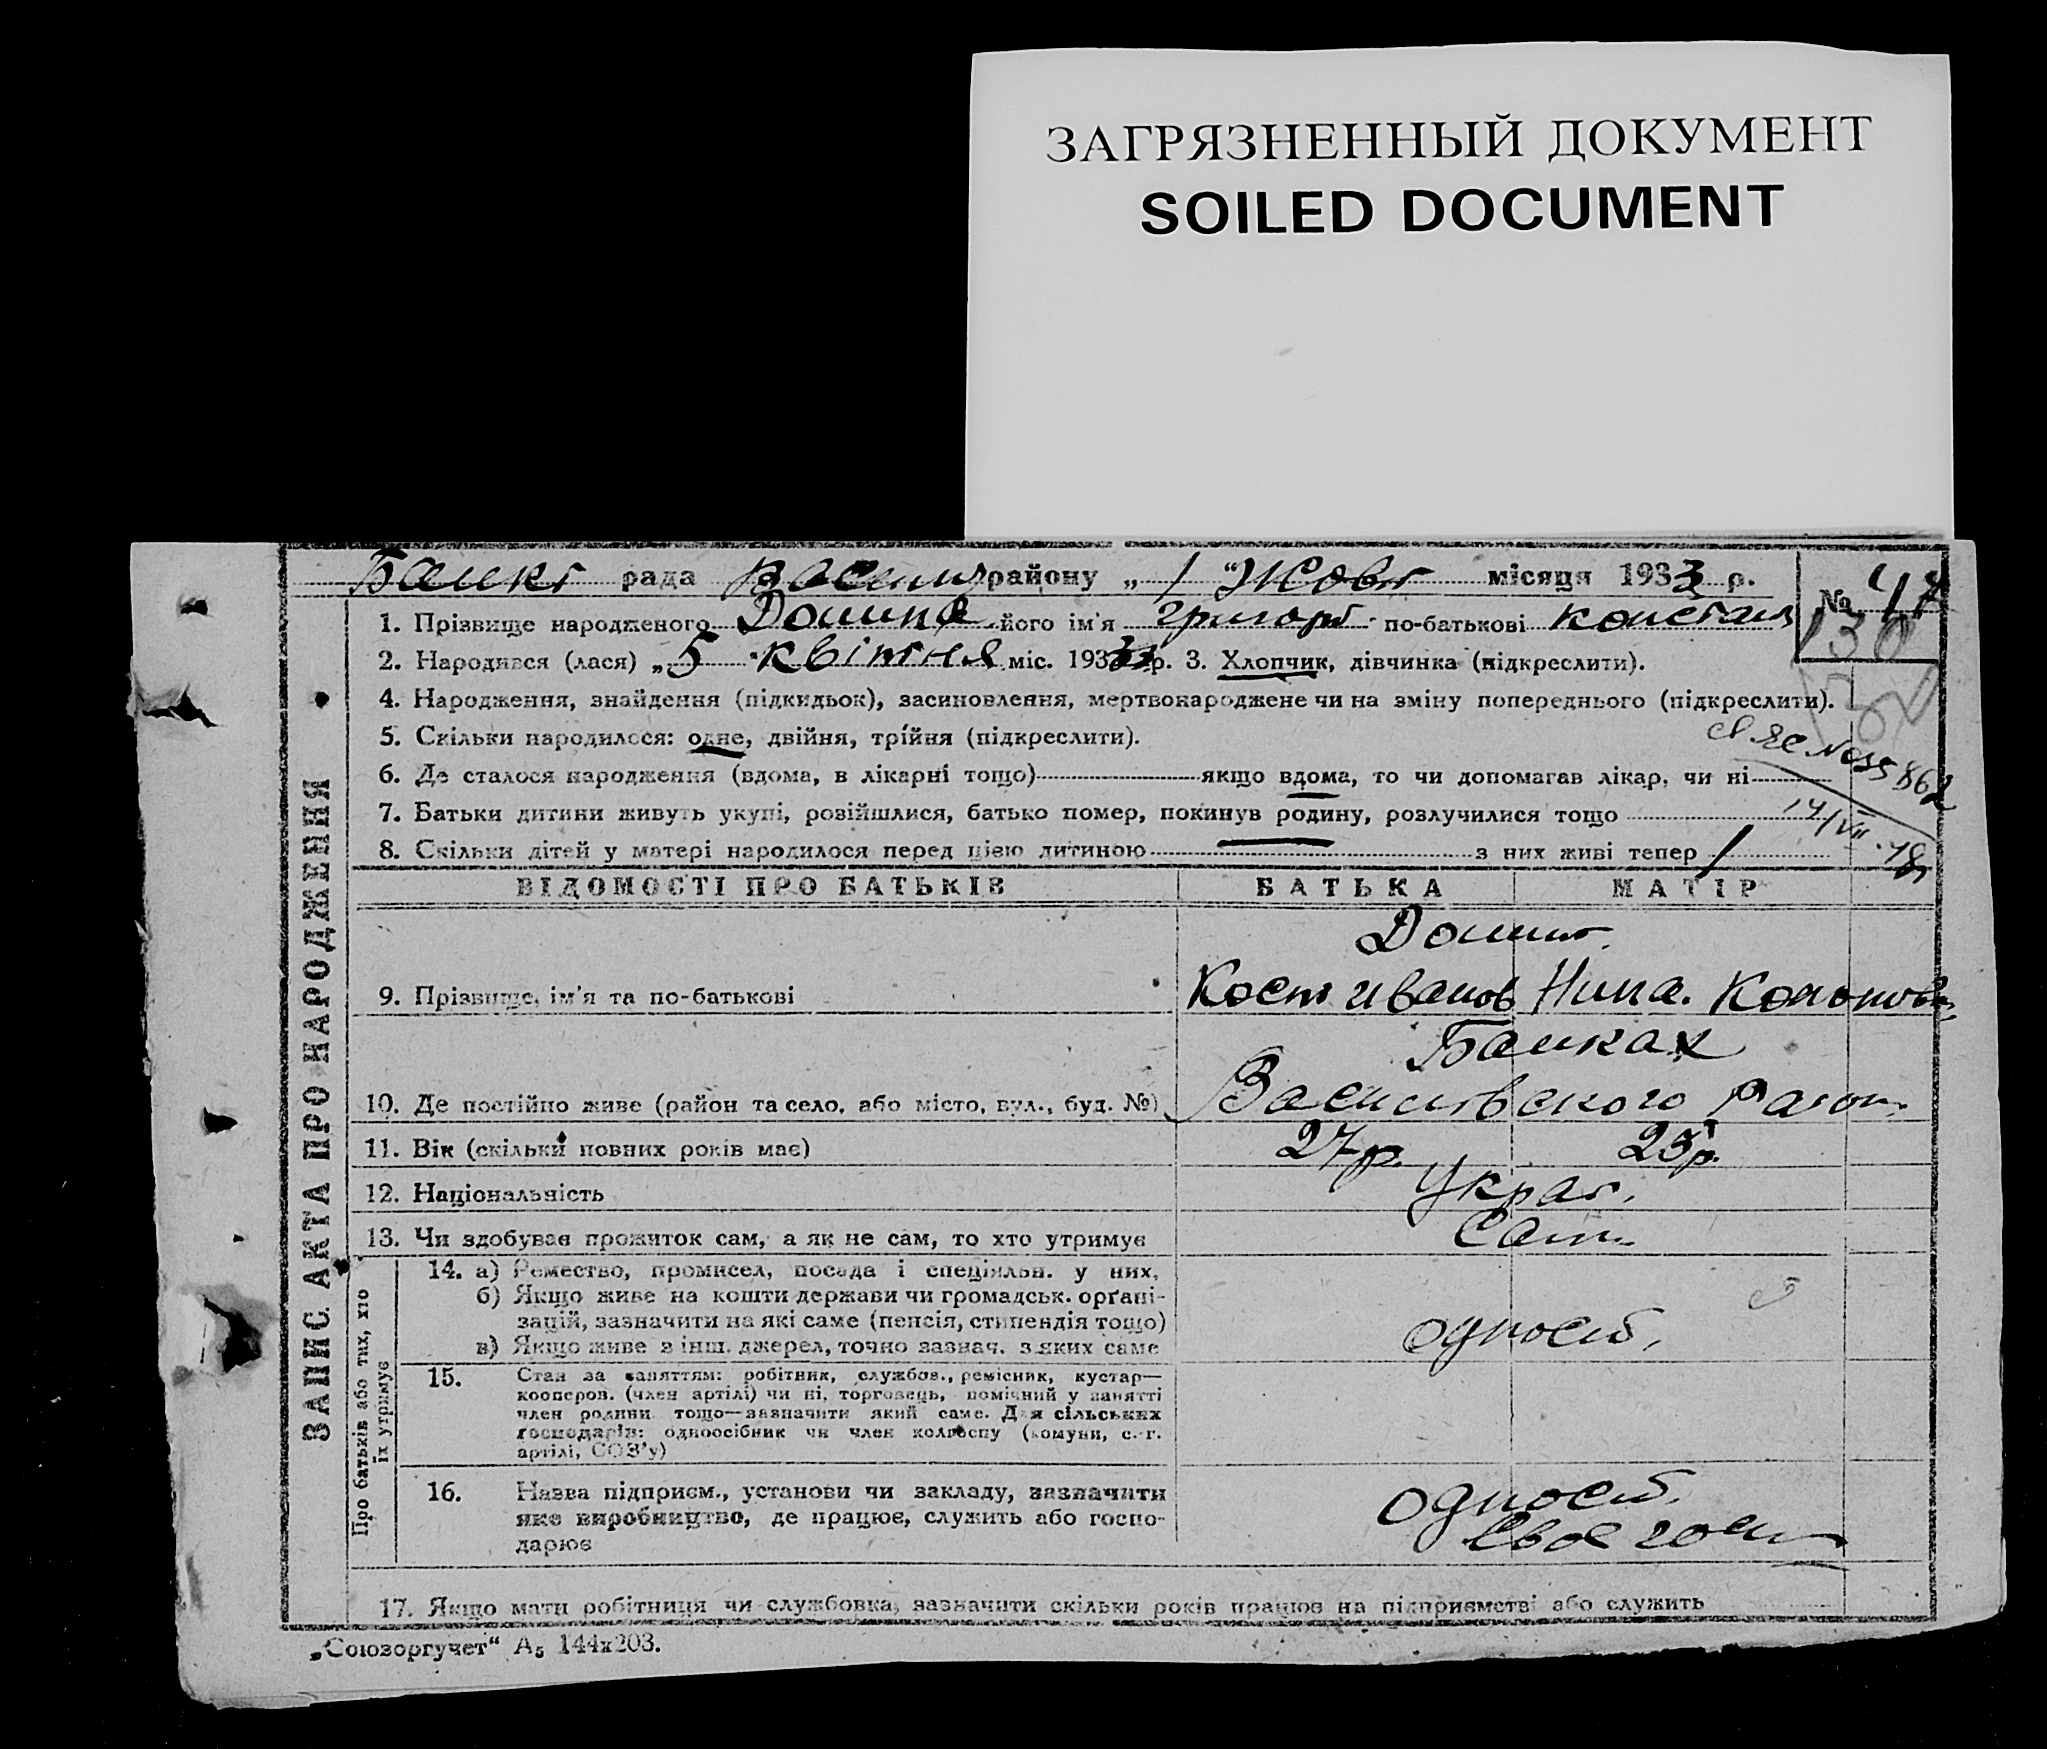 ЗАГРЯЗНЕННЫЙ ДОКУМЕНТ
SOILED DOCUMENT
рада району „ 1 " Жовт місяця 1933 р.
№ 47
1. Прізвище народженого Долина його ім'я Григорій по-батькові Констан
130
2. Народився (лася) „ 5 " квітня міс. 1933 р. 3. Хлопчик, дівчинка (підкреслити).
4. Народження, знайдення (підкидьок), засиновлення, мертвонароджене чи на зміну попереднього (підкреслити).
5. Скільки народилося: одне, двійня, трійня (підкреслити).
6. Де сталося народження (вдома, в лікарні тощо) якщо вдома, то чи допомагав лікар, чи ні
7. Батьки дитини живуть укупі, розвійшлися, батько помер, покинув родину, розлучилися тощо
14/VII.48
8. Скільки дітей у матері народилося перед цією дитиною — з них живі тепер 1
ВІДОМОСТІ ПРО БАТЬКІВ БАТЬКА МАТІР
9. Прізвище, ім'я та по-батькові
Кост Иванов Нина.
10. Де постійно живе (район та село, або місто, вул., буд. №)
Васильвского
11. Вік (скільки повних років має) 27р. 25р.
12. Національність Украї.
13. Чи здобуває прожиток сам, а як не сам, то хто утримує Сами
14. а) Ремество, промисел, посада і спеціяльн. у них,
б) Якщо живе на кошти держави чи громадськ. орґані-
зацій, зазначити на які саме (пенсія, стипендія тощо)
в) Якщо живе з інш. джерел, точно зазнач. з яких саме
одноосіб.
15. Стан за заняттям: робітник, службов., ремісник, кустар—
кооперов. (член артілі) чи ні, торговець, помічний у занятті
член родини тощо—зазначити який саме. Для сільських
господарів: одноосібник чи член колгоспу (комуни, с.-г.
артілі, СОЗ'у)
16. Назва підприєм., установи чи закладу, зазначити
яке виробництво, де працює, служить або госпо-
дарює
одноосіб.
Своє госп
17. Якщо мати робітниця чи службовка, зазначити скільки років працює на підприємстві або служить
ЗАПИС АКТА ПРО НАРОДЖЕННЯ
Про батьків або тих, хто
їх утримує
„Союзоргучет“ А5 144х203.